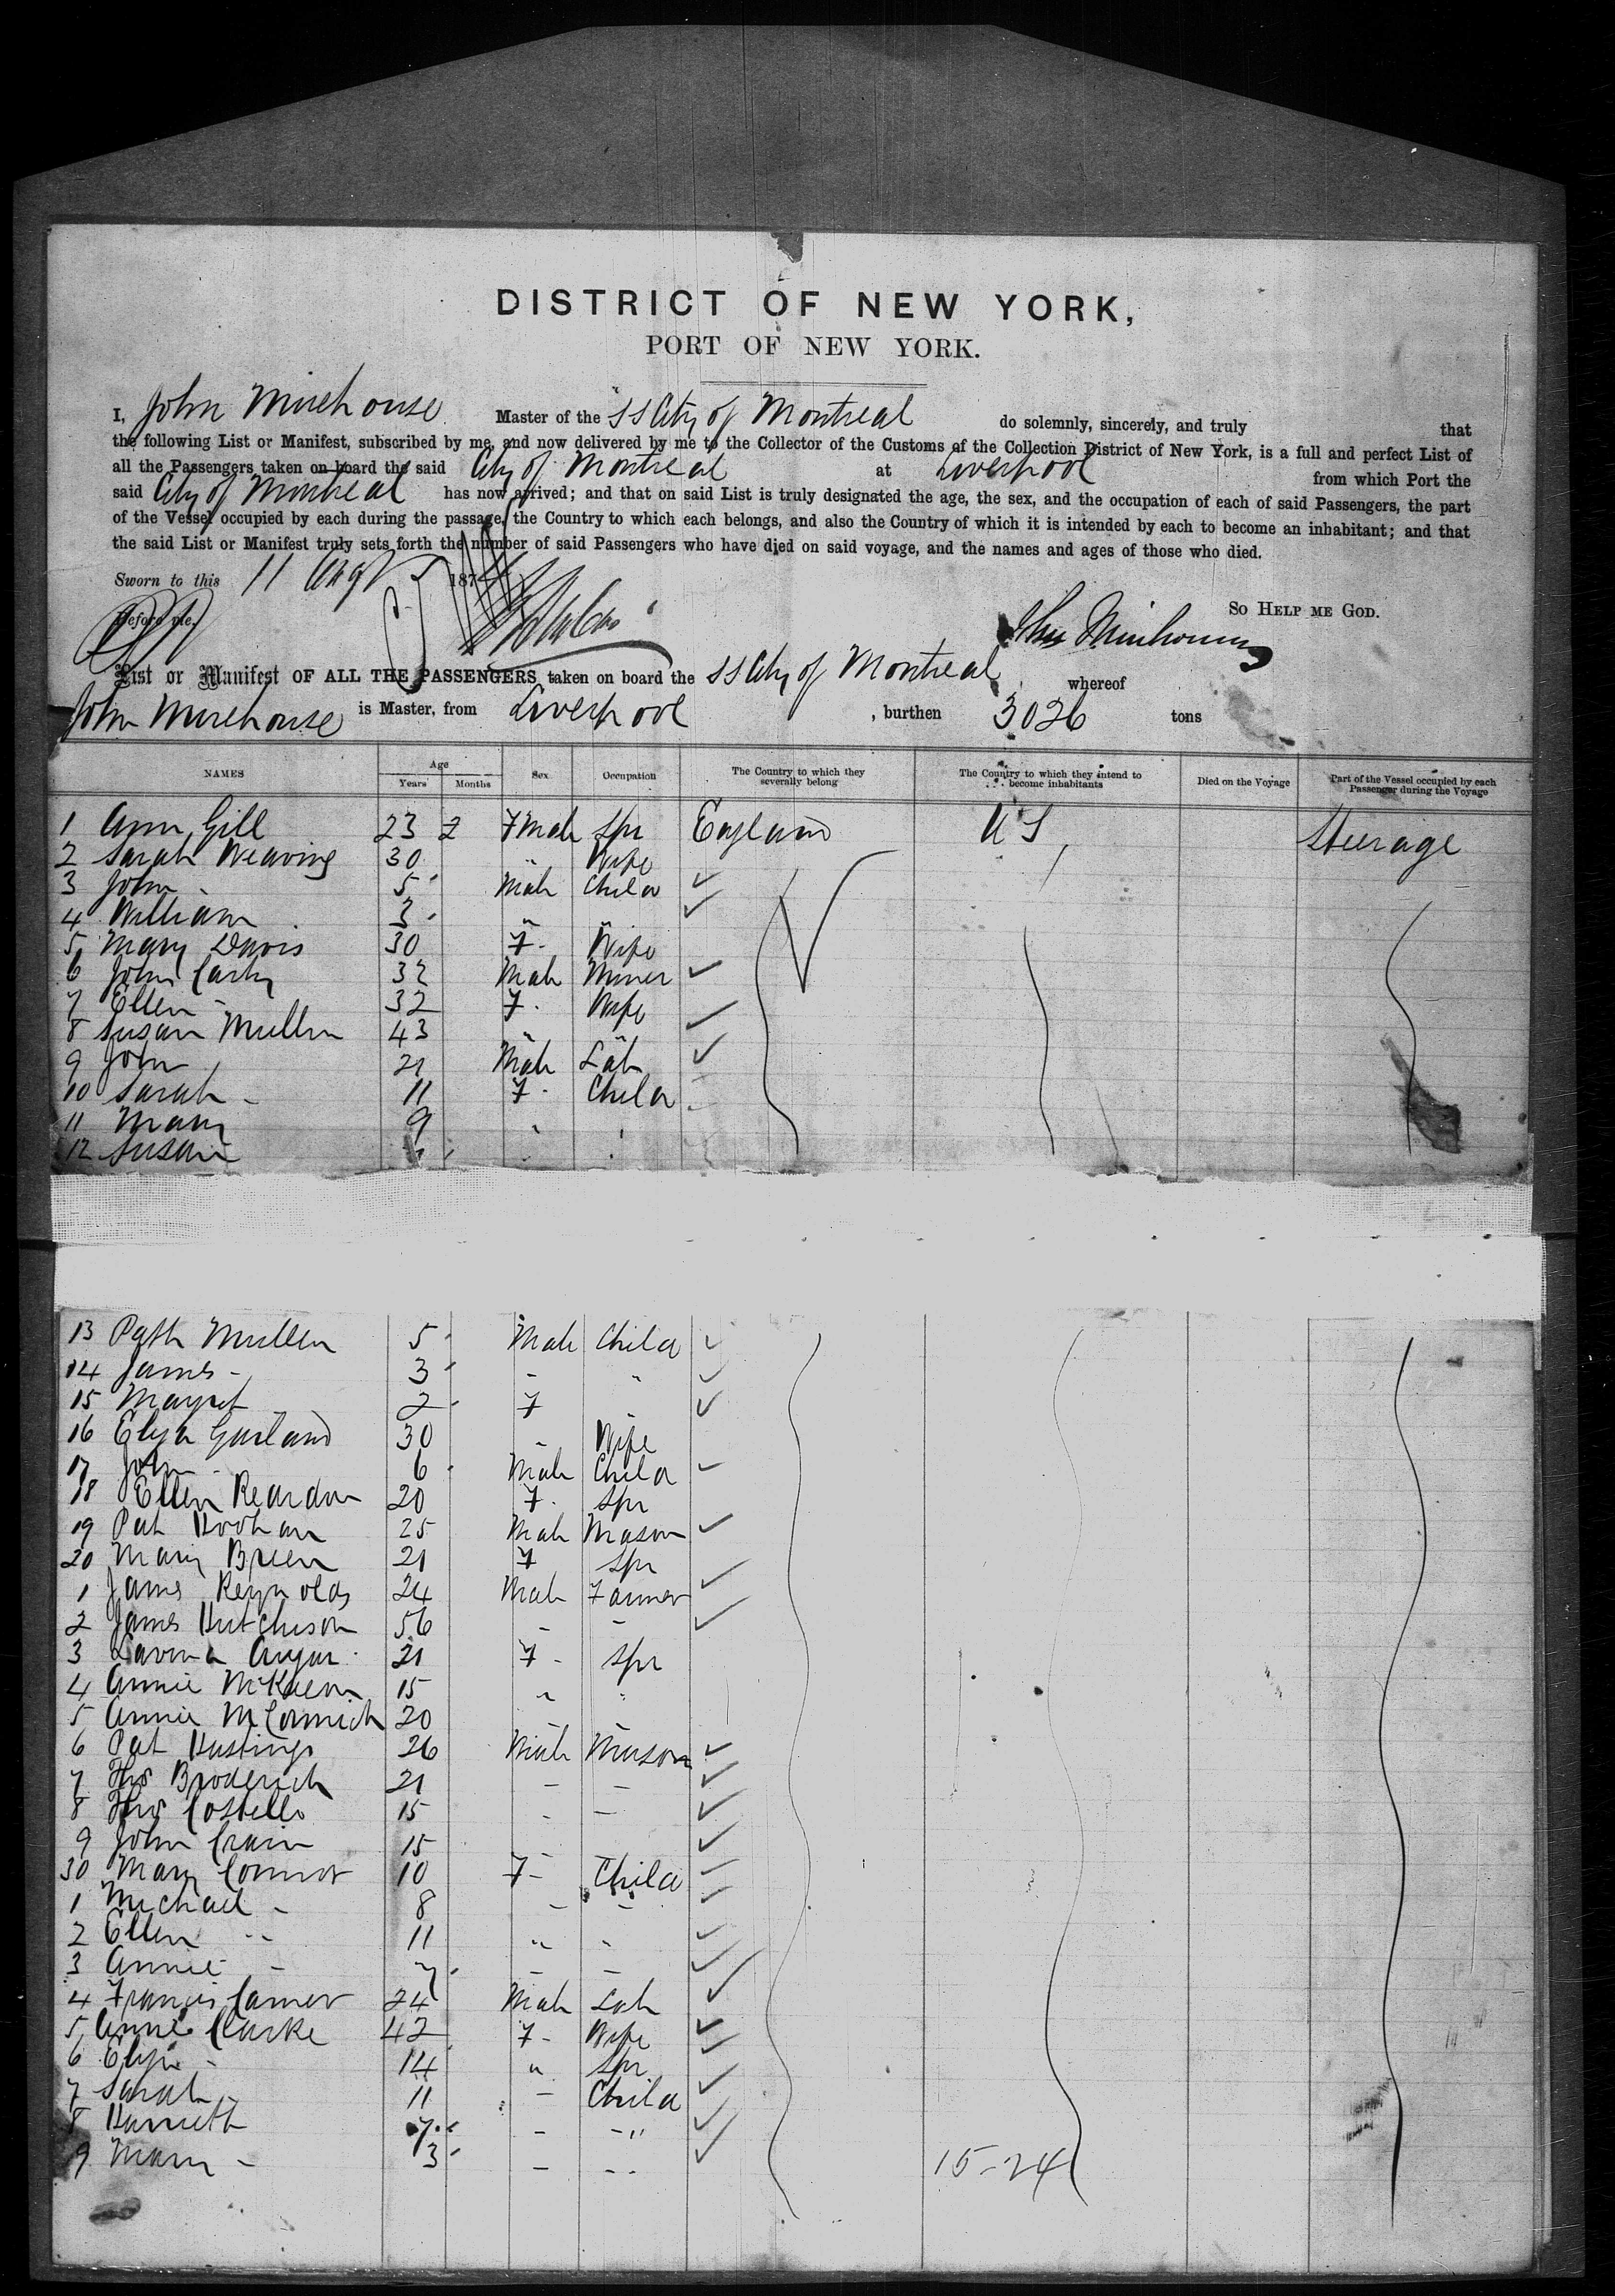 DISTRICT OF NEW YORK,
PORT OF NEW YORK.
I, John Mirehouse Master of the SS City of Montreal do solemnly, sincerely, and truly that
the following List or Manifest, subscribed by me, and now delivered by me to the Collector of the Customs of the Collection District of New York, is a full and perfect List of
all the Passengers taken on board the said City of Montreal at Liverpool from which Port the
said City of Montreal has now arrived; and that on said List is truly designated the age, the sex, and the occupation of each of said Passengers, the part
of the Vessel occupied by each during the passage, the Country to which each belongs, and also the Country of which it is intended by each to become an inhabitant; and that
the said List or Manifest truly sets forth the number of said Passengers who have died on said voyage, and the names and ages of those who died.
Sworn to this 11 Augt 187
Before me, So Help me God.
John Mirehouse
List or Manifest OF ALL THE PASSENGERS taken on board the SS City of Montreal whereof
John Mirehouse is Master, from Liverpool , burthen 3026 tons
NAMES Age Years Months Sex Occupation The Country to which they severally belong The Country to which they intend to become inhabitants Died on the Voyage Part of the Vessel occupied by each Passenger during the Voyage
1 Ann Gill 23 2 Fmale Spr England US Steerage
2 Sarah Weaving 30 " Wife
3 John - 5 Male Child
4 William 3 "
5 Mary Davis 30 F - Wife
6 John Carty 32 Male Miner
7 Ellen - 32 F - Wife
8 Susan Mullen 43 " "
9 John 21 Male Lab
10 Sarah - 11 F - Child
11 Mary 9 " "
12 Susan
13 Patk Mullen 5 Male Child
14 James - 3 - "
15 Margret 2 F
16 Eliza Garland 30 - Wife
17 John - 6 Male Child
18 Ellen Reardon 20 F - Spr
19 Pat Hoohan 25 Male Mason
20 Mary Breen 21 F Spr
1 James Reynolds 24 Male Farmer
2 James Hutchison 56 - -
3 Lavina 21 F - Spr
4 Annie McKeon 15 " "
5 Annie McCormick 20 - -
6 Pat Hastings 26 Male Mason
7 Ths Broderick 21 - -
8 Ths Costello 15 - -
9 John Crain 15
30 Mary Connor 10 F - Child
1 Michael - 8 - -
2 Ellen - 11 " "
3 Annie - 7 - -
4 Francis Carner 24 Male Lab
5 Annie Clarke 42 F - Wife
6 Eliza - 14 " Spr
7 Sarah - 11 - Child
8 Harriett 7 - - "
9 Mary - 3 - - -
15-24